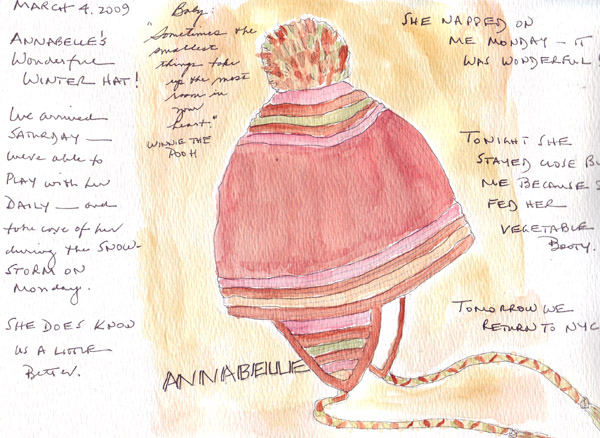 MARCH 4. 2009
ANNABELLE'S
Wonderful
WINTER HAT!
We arrived
SATURDAY —
were able to
PLAY with her
DAILY — and
take care of her
during the SNOW-
STORM ON
Monday.
SHE DOES KNOW
US A LITTLE
Better.
Baby:
"Sometimes the
smallest
things take
up the most
room in
your
heart."
WINNIE THE
POOH
SHE NAPPED ON
ME MONDAY — IT
WAS WONDERFUL!
TONIGHT SHE
STAYED CLOSE BY
ME BECAUSE
FED HER
VEGETABLE
BOOTY.
TOMORROW WE
RETURN TO NYC
ANNABELLE